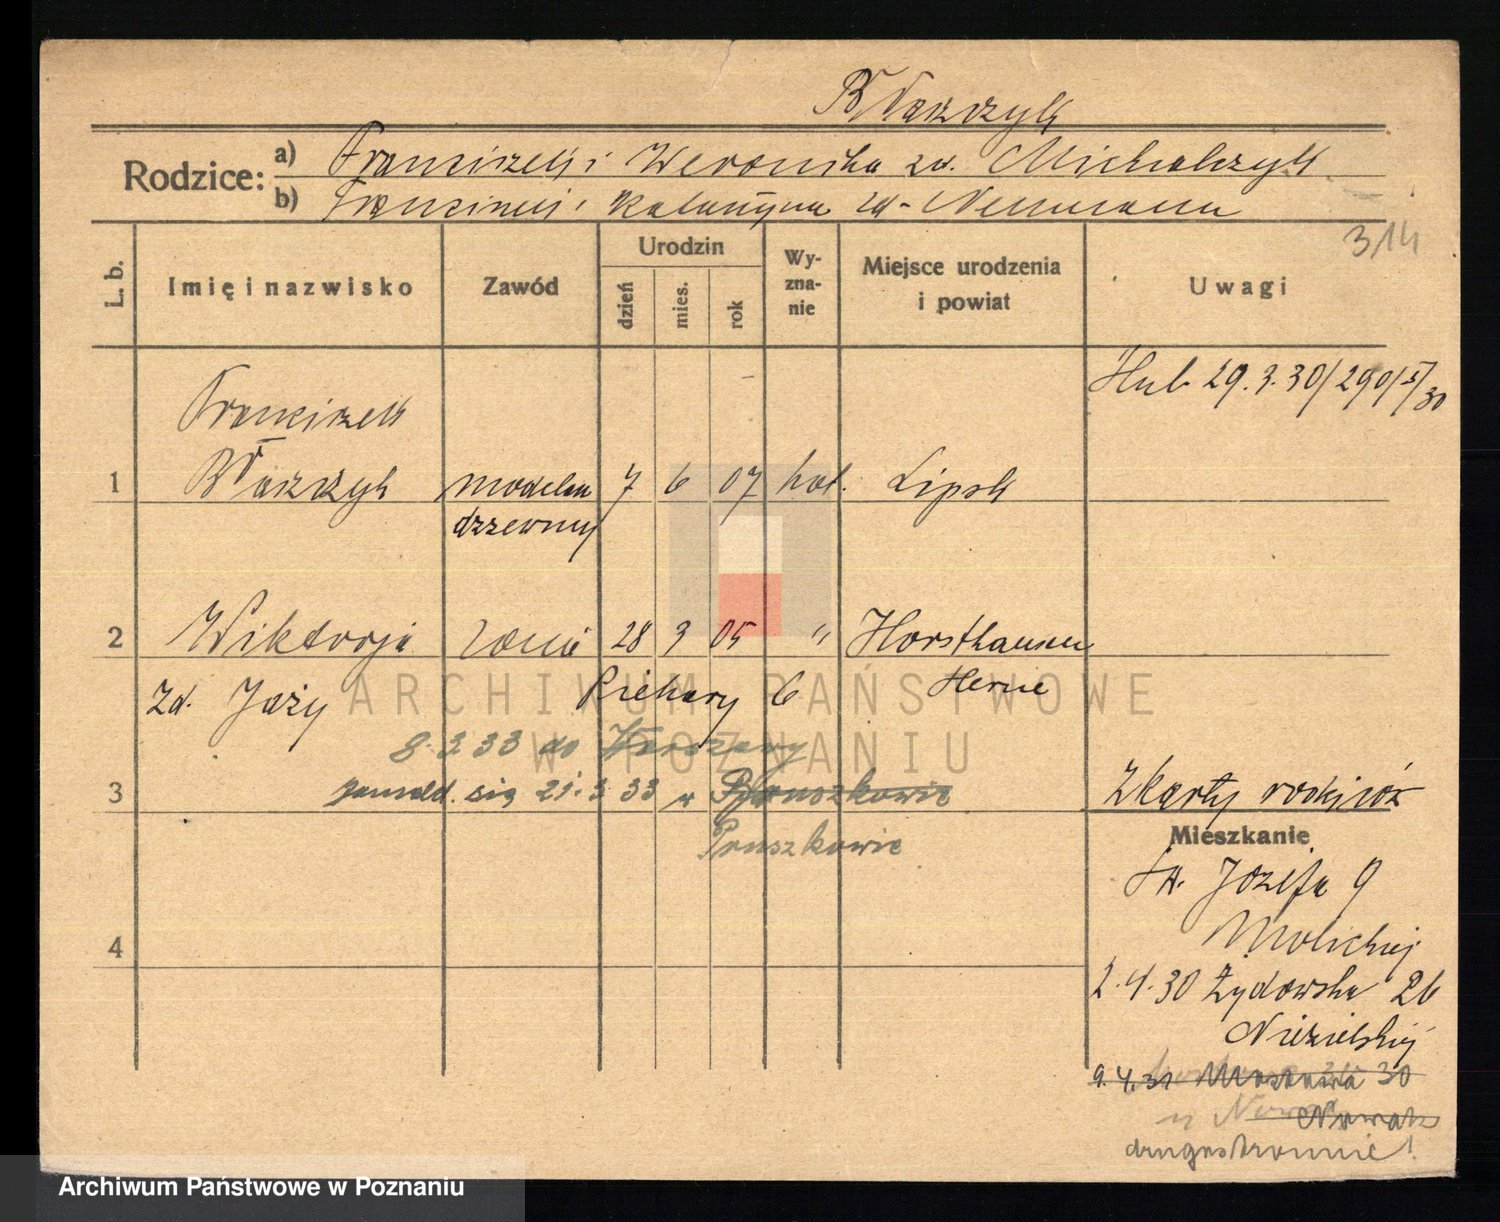 Rodzice:
a) Franciszek i Weronika zd. Michalczyk
b) Franciszek i Katarzyna zd. Neumann
314
L. b.
Imię i nazwisko
Zawód
Urodzin
dzień
mies.
rok
Wy-
zna-
nie
Miejsce urodzenia
i powiat
Uwagi
29.3.30/290/I/30
Franciszek
1 modelar 7 6 07 kat. Lipsk
drzewny
2 Wiktorja żona 28 9 05 " Horsthausen
zd. Jaży Piekary 6 Herne
8.3 33 do Warszawy
zameld. się 21.3 33 w Pruszkowie
3
Pruszkowie
z karty rodziców
Mieszkanie
Św. Józefa 9
4
2.4.30 Żydowska 26
9.4.31 Mostowa 30
Nowak
drugostronnie!
ARCHIWUM PAŃSTWOWE
W POZNANIU
Archiwum Państwowe w Poznaniu